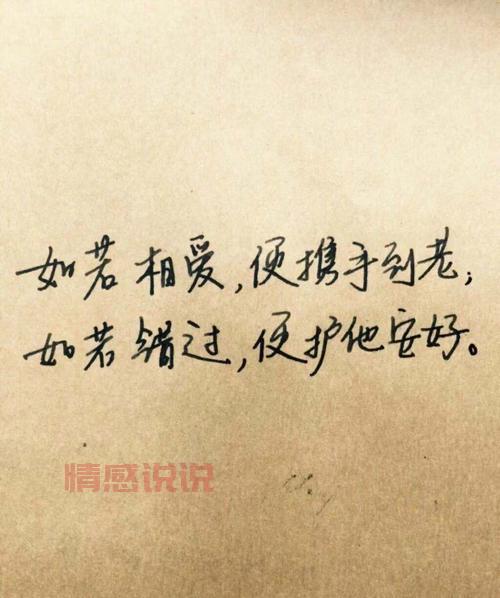 如若相爱,便携手到老;
如若错过,便护他安好。
情感说说